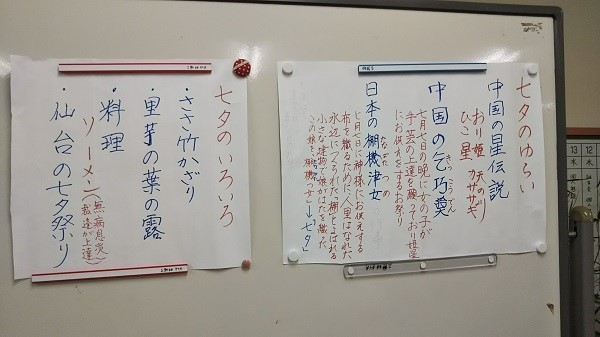 七夕のゆらい
中国の星伝説
おり姫 天の川
ひこ星 カササギ
きっこうでん
中国の乞巧奠
七月七日の晩に女の子が
手芸の上達を願っており姫星
にお供えをするお祭り
日本の棚機津女
七月七日に神様にお供えする
布を織るために人里はなれた
水辺につくられた「棚」とよばれる
小さな建物で娘がはたを織った
この娘を「棚機つ女」→「七夕」
七夕のいろいろ
・ささ竹かざり
・里芋の葉の露
・料理
ソーメン(無病息災
裁縫が上達)
・仙台の七夕祭り
13 12
水 水